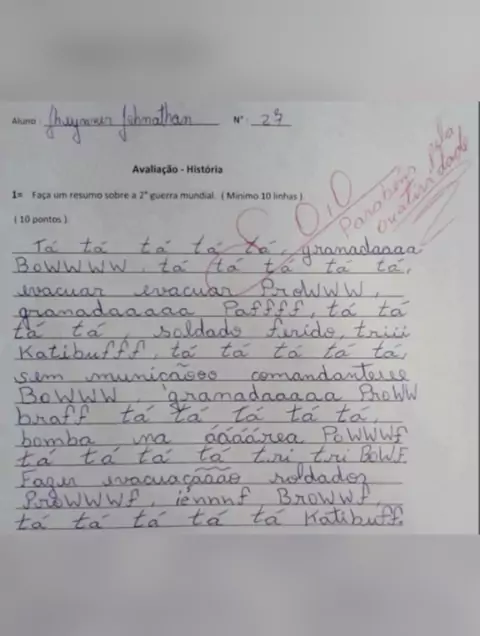 Aluno: Jheymmer Johnathan Nº: 27
Avaliação - História
1= Faça um resumo sobre a 2° guerra mundial. ( Minimo 10 linhas )
( 10 pontos )
0,0
Parabéns pela
criatividade
Tá tá tá tá tá, granadaaaa
BOWWWW, tá tá tá tá tá,
evacuar evacuar ProWWW,
granadaaaaa Paffff, tá tá
tá tá, soldado ferido, triii
Katibufff, tá tá tá tá tá,
sem muniçãooo comandanteee
BOWWW, granadaaaaa ProWW
braff tá tá tá tá tá,
bomba na áááárea PoWWWf
tá tá tá tá tri tri BoWF
Fazer evacuaçãããão soldados
ProWWWf, iénnnf BroWWf,
tá tá tá tá tá Katibuff.